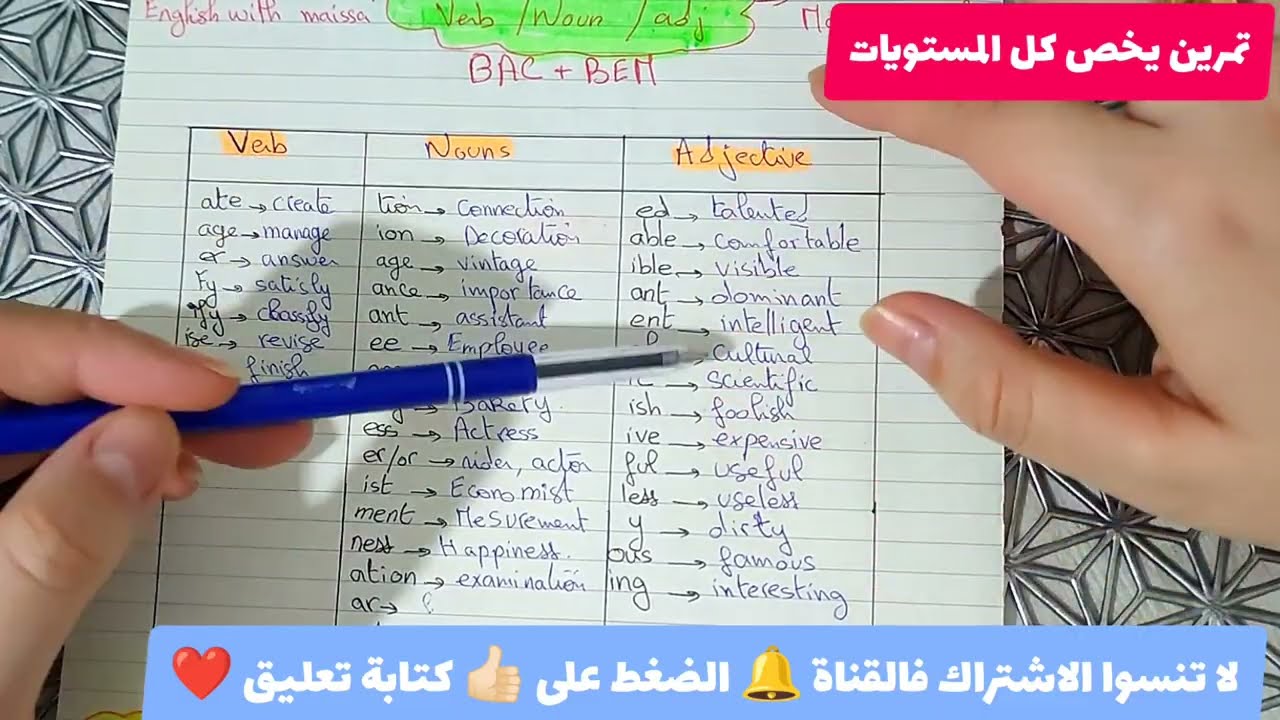 English with maissa
Verb / Noun / adj
تمرين يخص كل المستويات
BAC + BEM
Verb Nouns Adjective
ate → create tion → Connection ed → talented
age → manage ion → Decoration able → comfortable
er → answer age → vintage ible → visible
Fy → satisfy ance → importance ant → dominant
ify → classify ant → assistant ent → intelligent
ise → revise ee → Employee → Cultural
finish → scientific
→ Bakery. ish → foolish
ess → Actress ive → expensive
er/or → rider, actor ful → useful
ist → Economist less → useless
ment → MeSurement y → dirty
ness → Happiness. ous → famous
ation → examination ing → interesting
ar →
لا تنسوا الاشتراك فالقناة 🔔 الضغط على 👍🏻 كتابة تعليق ❤️